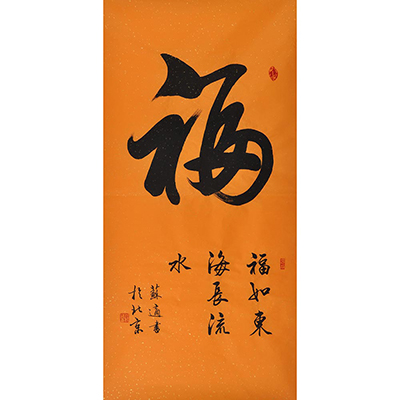 福
福如東
海長流
水
蘇適書
於北京